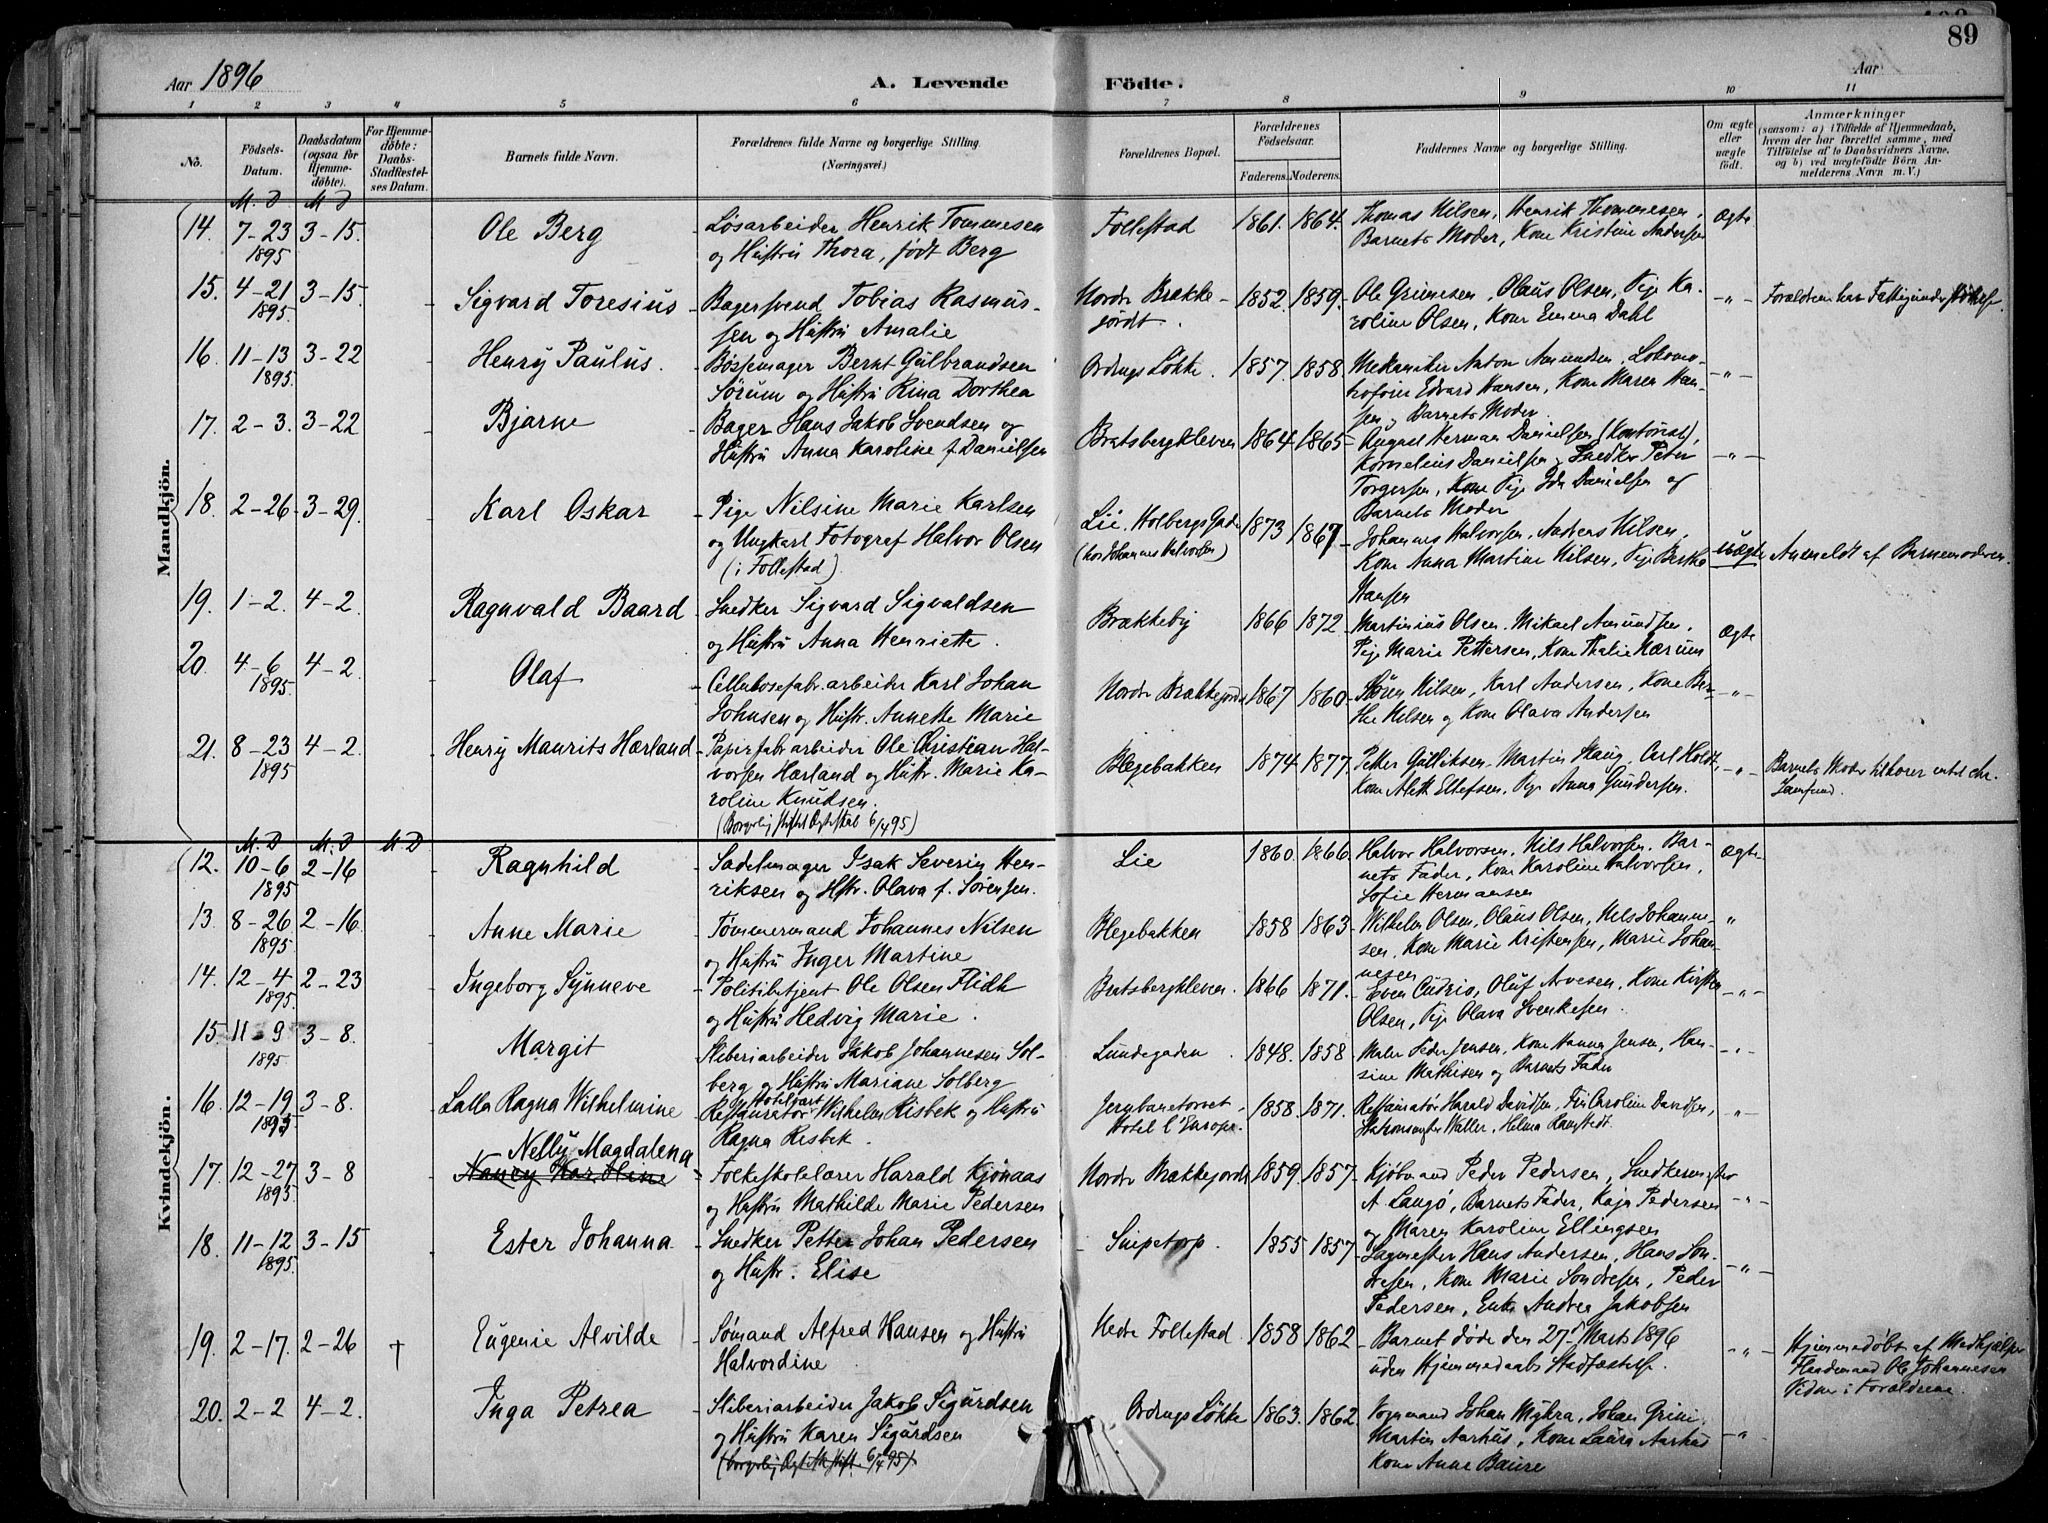 89
Aar 1896
A. Levende Födte.
Aar
1 2 3 4 5 6 7 8 9 10 11
No.
Födsels-Datum.
Daabsdatum (ogsaa for Hjemme-döbte).
For Hjemme-döbte: Daabs-Stadfæstel-ses Datum.
Barnets fulde Navn.
Forældrenes fulde Navne og borgerlige Stilling.
(Næringsvei.)
Forældrenes Bopæl.
Forældrenes Födselsaar.
Faderens. Moderens.
Faddernes Navne og borgerlige Stilling.
Om ægte eller uægte födt.
Anmærkninger
(saasom: a) i Tilfælde af Hjemmedaab,
hvem der har forrettet samme, med
Tilföielse af to Daabsvidners Navne,
og b) ved uægtefödte Börn An-
melderens Navn m. V.)
Mandkjön.
M. D M D
14. 7-23 1895 3-15. Ole Berg
Løsarbeider Henrik Tommesen
og Hustru Thora, født Berg
Follestad 1861. 1864.
Thomas Nilsen, Henrik Thommesen,
Barnets Moder, Kone Kristine Andersen
Ægte
15. 4-21 1895 3-15. Sigvard Toresius
Bagersvend Tobias Rasmus-
sen og Hustru Amalie
Nordre Brække-
jordt. 1852. 1859.
Ole Grimesen, Olaus Olsen, Pige Ka-
roline Olsen, Kone Emma Dahl
-"-
16. 11-13 1895. 3-22 Henry Paulus.
Bøssemager Bernt Gulbrandsen
Sørum og Hustru Rina Dorthea
Ordrups Løkke. 1857. 1858
Mekaniker Anton Amundsen, Lokomo-
Edvard Hansen, Kone Maren Han-
sen, Barnets Moder.
-"-
17. 2-3. 3-22 Bjarne
Bager Hans Jakob Svendsen og
Hustru Anna Karoline f. Danielsen
Bratsbergkleven 1864 1865
August Herman Danielsen (Kontorist),
Kornelius Danielsen, Snedker Peter
Torgersen, Pige Ida Danielsen og
Barnets Moder
-"-
18. 2-26 3-29. Karl Oskar
Pige Nilsine Marie Karlsen
og Ungkarl Fotograf Halvor Olsen
(i Follestad)
Lie, Holbergs Gade
(hos Johannes Halvorsen) 1873 1867
Johannes Halvorsen, Andreas Nilsen,
Kone Anna Martine Nilsen, Pige Berthe
Hansen
uægte
Anmeldt af Barnemoderen.
19. 1-2. 4-2. Ragnvald Baard
Snedker Sigvard Sigvaldsen
og Hustru Anna Henriette.
Brækkeby 1866 1872
Martinius Olsen, Mikael Amundsen,
Pige Marie Pettersen, Kone Thalie Kærum
Ægte
20. 4-6 1895. 4-2 Olaf
Cellulosefabr.arbeider Karl Johan
Johnsen og Hustr. Annette Marie
Nordre Brækkejordt 1867 1860
Søren Nilsen, Karl Andersen, Kone Ber-
the Nilsen og Kone Olava Andersen
-"-
21. 8-23 1895 4-2. Henry Maurits Hærland
Papirfabr arbeider Ole Christian Hal-
vorsen Hærland og Hustr. Marie Ka-
roline Knudsen.
(Borgerlig stiftet Ægteskab 6/4 95)
Blegebakken 1874 1877
Petter Gulliksen, Martin Haug, Carl Holdt,
Kone Aleth Ellefsen, Pige Anna Gundersen.
-"-
Barnets Moder tilhører intet chr.
Samfund.
Kvindekjön.
M. D M. D M D
12. 10-6 1895 2-16 Ragnhild
Sadelmager Isak Severin Hen-
riksen og Hstr. Olava f. Sørensen.
Lie 1860. 1866
Halvor Halvorsen, Nils Halvorsen, Bar-
nets Fader, Kone Karoline Halvorsen,
Sofie Hermansen
Ægte
13. 8-26 1895 2-16. Anne Marie
Tømmermand Johannes Nilsen
og Hustru Inger Martine
Blegebakken 1858 1863
Wilhelm Olsen, Olaus Olsen, Nils Johanne-
sen, Kone Marie Kristensen, Marie Johan-
nesen
"
14. 12-4 1895. 2-23 Ingeborg Synneve
Politibetjent Ole Olsen Flidh
og Hustru Hedvig Marie.
Bratsbergkleven. 1866 1871.
Even, Oluf Arvesen, Kone Kirsten
Olsen, Pige Olava Svenkesen.
-"-
15 11-9 1895. 3-8. Margit
Sliberiarbeider Jakob Johannesen Sol-
berg og Hustru Mariane Solberg
Lundegaden 1848. 1858
Maler Peder Jensen, Kone Hanna Jensen, Han-
sine Mathisen og Barnets Fader
-"-
16. 12-19 1895 3-8. Lalla Ragna Wilhelmine
Restauratør Wilhelm Risbek og Hustru
Ragna Risbek.
Jernbanetorvet
Hotel l'Europe. 1858. 1871.
Restauratør Harald Davidsen, Frk Caroline Davidsen,
Waller, Helma
-"-
17. 12-27 1895 3-8 Nelly Magdalena
Folkeskolelærer Harald Kjønaas
og Hustru Mathilde Marie Pedersen
Nordre Brækkejordt 1859. 1857
Kjøbmand Peder Pedersen, Snedkermester
A Langø, Barnets Fader, Kaja Pedersen
og Maren Karoline Ellingsen
-"-
18. 11-12 1895. 3-15 Ester Johanna
Snedker Petter Johan Pedersen
og Hustr. Elise
Snipetorp. 1855 1857
Sagmester Hans Andersen, Hans Son-
dresen, Kone Marie Sondresen, Peder
Pedersen, Enke Andrea Jakobsen
-"-
19. 2-17. 2-26 † Eugenie Alvilde
Sømand Alfred Hansen og Hustru
Halvordine.
Nedre Follestad 1858 1862
Barnet døde den 27. Marts 1896
uden Hjemmedaabs Stadfæstelse.
-"-
Hjemmedøbt af Medhjælper
Ole Johannesen
Vidner: Forældrene.
20. 2-2 4-2. Inga Petrea
Sliberiarbeider Jakob Sigurdsen
og Hustru Karen Sigurdsen
Ordrups Løkke 1863. 1862
Vognmand Johan Myhra, Johan Grini,
Martin Aarhus, Kone Laura Aarhus
Kone Anne Baure
-"-